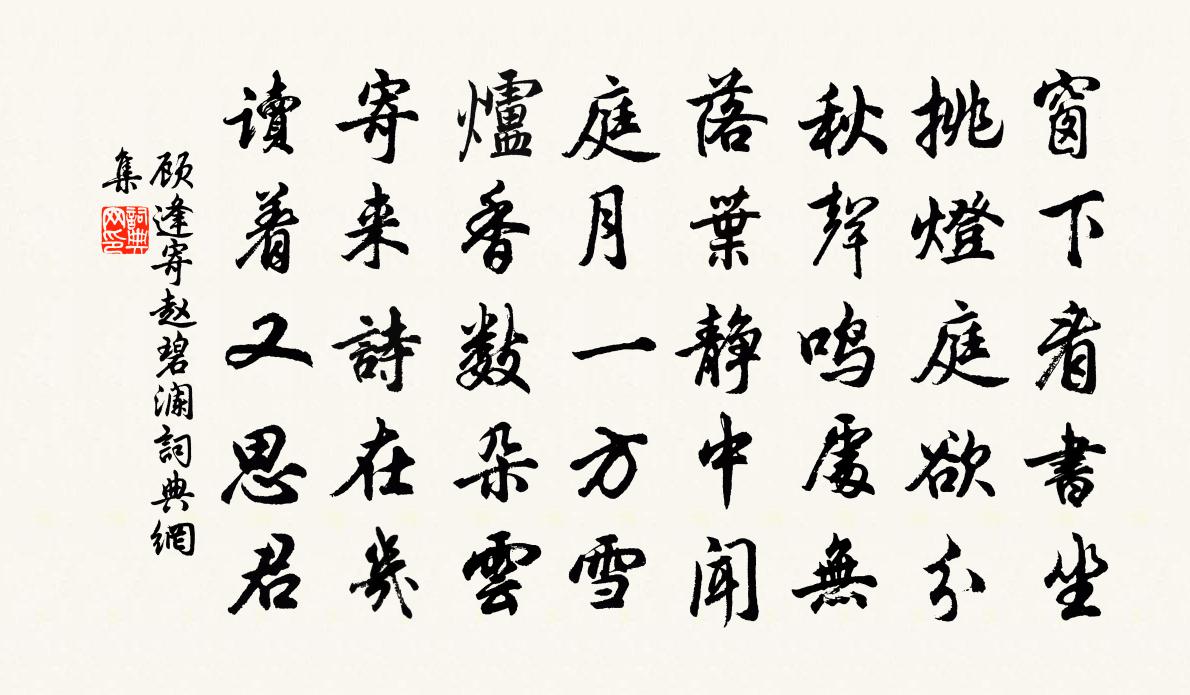 窗下看書坐
挑燈庭欲分
秋聲鳴處無
落葉靜中聞
庭月一方雪
爐香數朵雲
寄来詩在幾
讀着又思君
顾逢寄赵碧澜詞典網
集
詞典网印